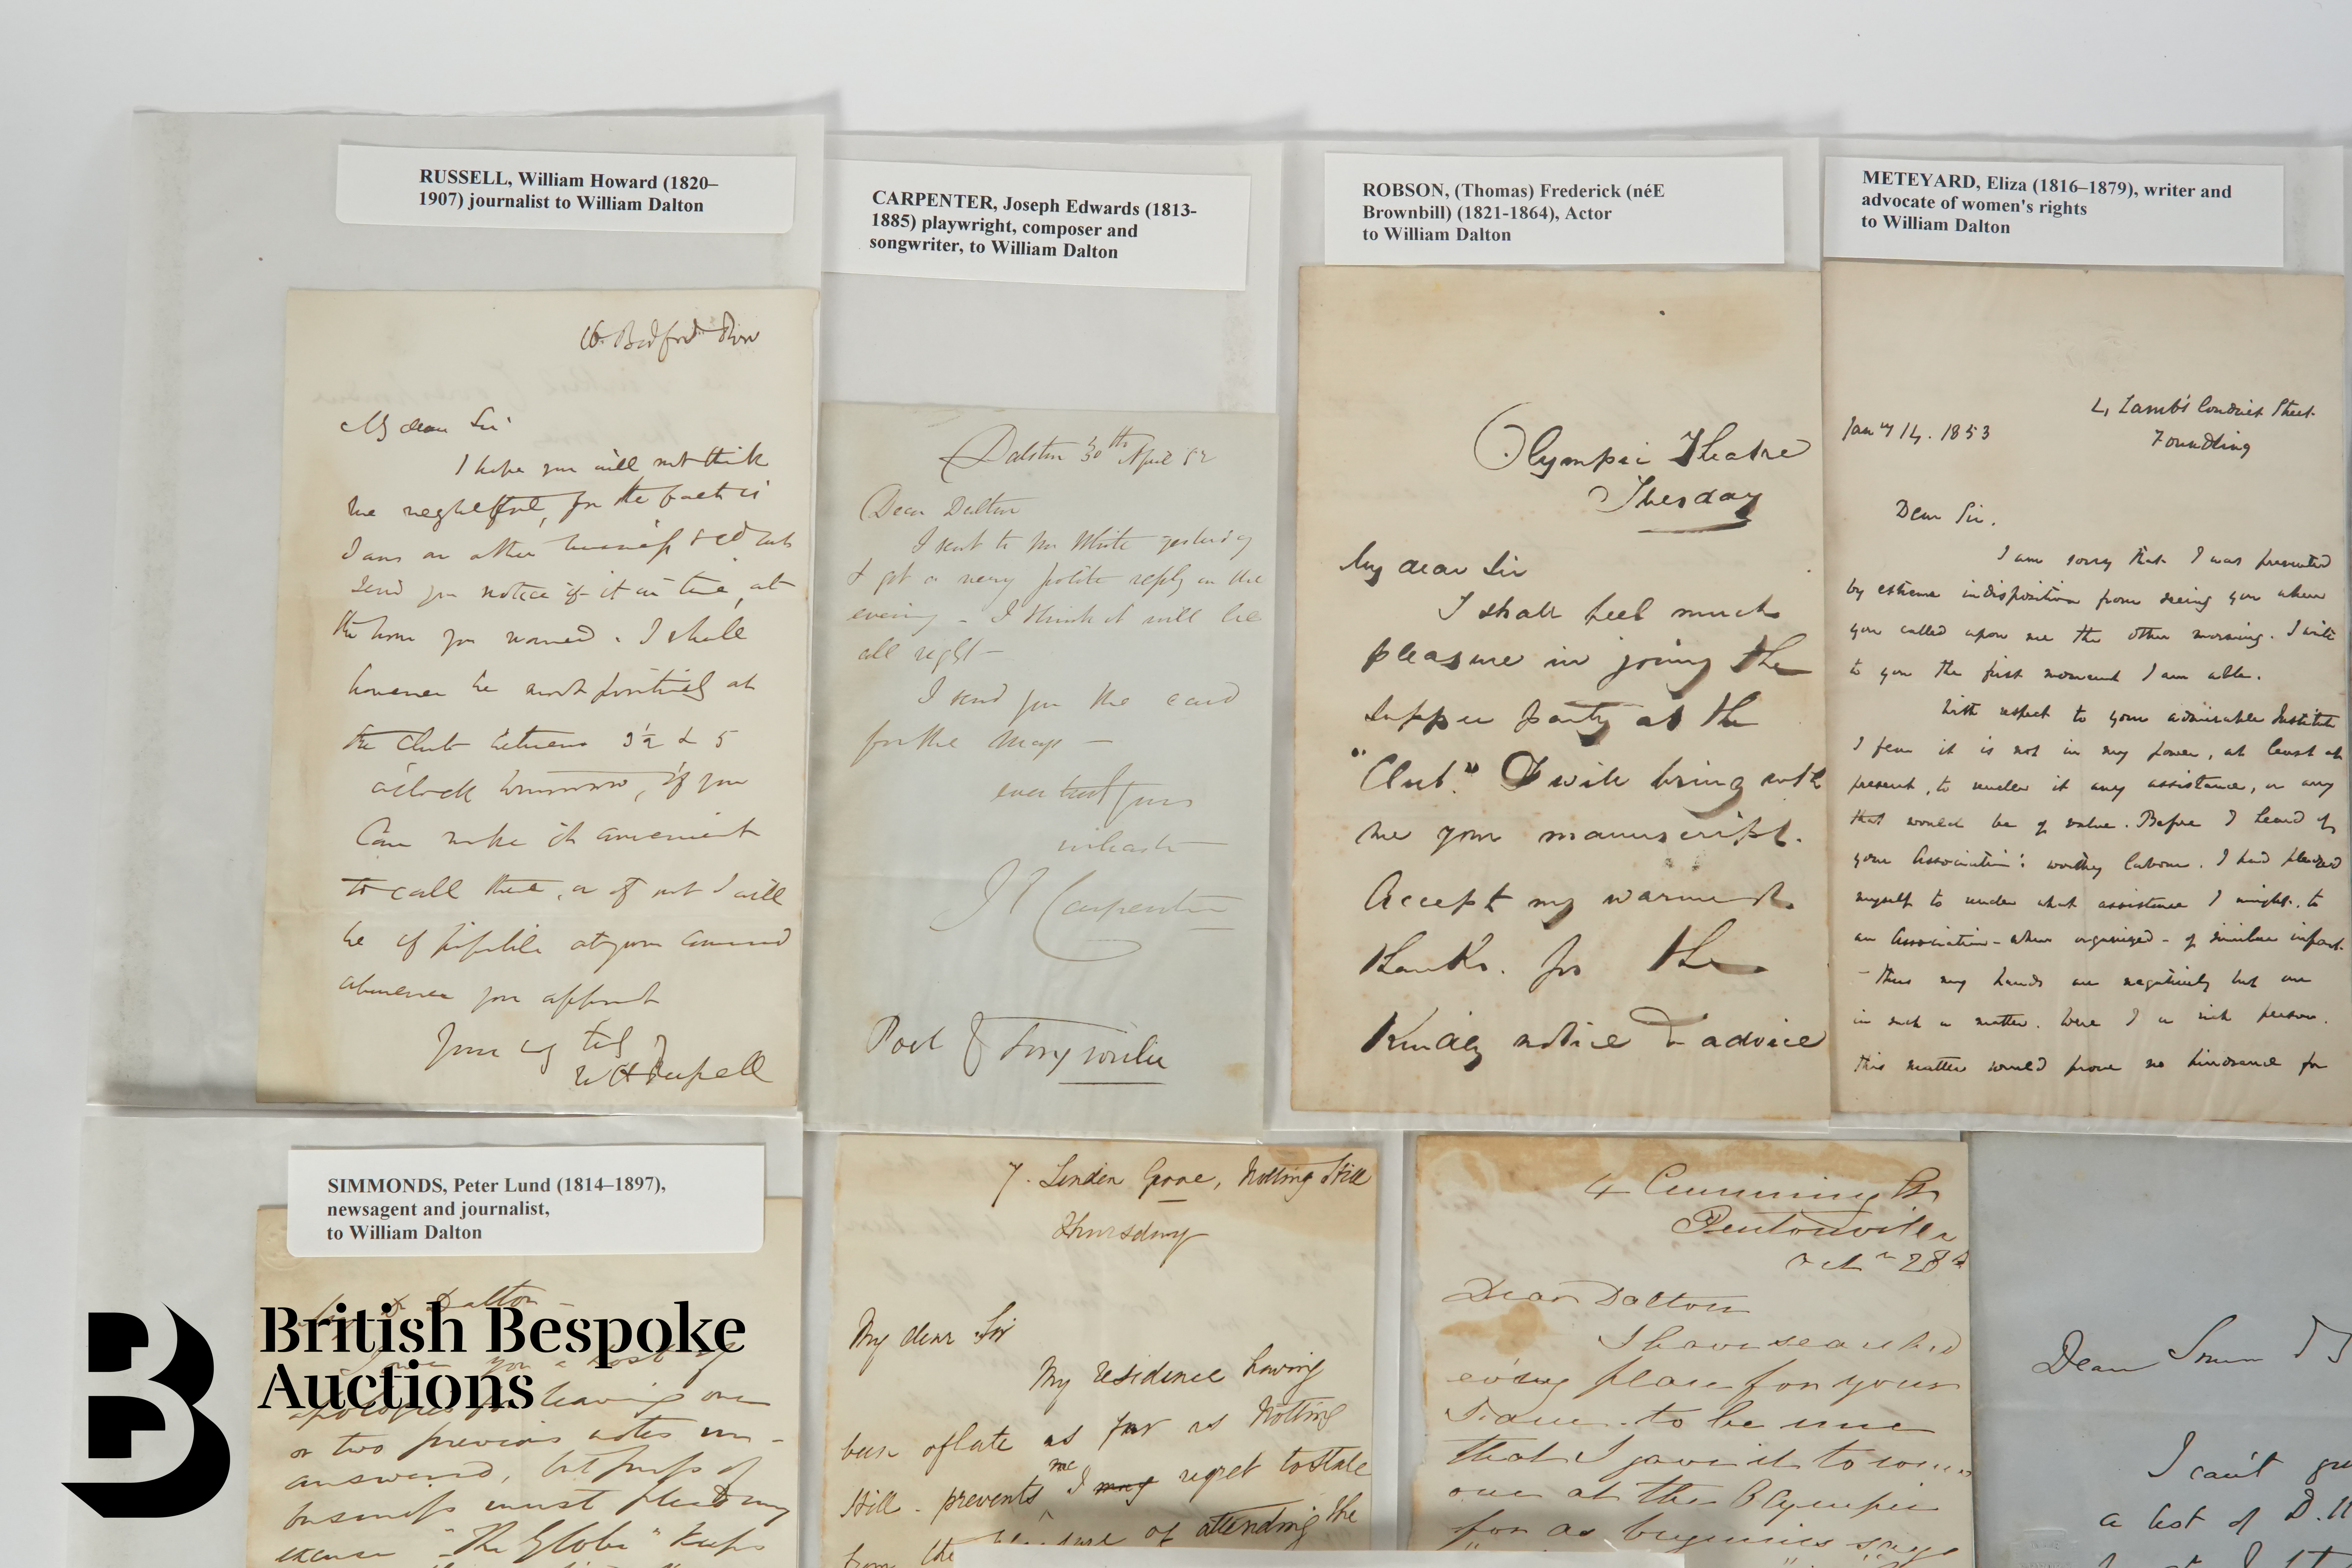 RUSSELL, William Howard (1820–
1907) journalist to William Dalton
My dear Sir
I hope you will not think
me neglectful, for the fact is
I am on other business & did not
send you notice of it in time, at
the hour you named. I shall
however be most positively at
the Club between 3½ & 5
o'clock tomorrow, if you
can make it convenient
to call there, or if not I will
be if possible at your command
whenever you appoint
Yours
WH Russell
CARPENTER, Joseph Edwards (1813-
1885) playwright, composer and
songwriter, to William Dalton
Dalston 30th April 52
Dear Dalton
I sent to Mr White yesterday
& got a very polite reply in the
evening – I think it will be
all right –
I send you the card
for the
ever yours
in haste
J E Carpenter
Poet & Song writer
ROBSON, (Thomas) Frederick (néE
Brownbill) (1821-1864), Actor
to William Dalton
Olympic Theatre
Tuesday
My dear Sir
I shall feel much
pleasure in joing the
supper party at the
"Club." I will bring with
me your manuscript.
Accept my warmest
thanks for the
Kindly notice & advice
METEYARD, Eliza (1816–1879), writer and
advocate of women's rights
to William Dalton
4, Lamb's Conduit Street
Foundling
Jany 14. 1853
Dear Sir.
I am sorry that I was prevented
by extreme indisposition from seeing you when
you called upon me the other morning. I write
to you the first moment I am able.
With respect to your admirable Institute
I fear it is not in my power, at least at
present, to render it any assistance, or any
that would be of value. Before I heard of
your Association's worthy labours. I had pledged
myself to render what assistance I might, to
an Association – when organized – of similar import.
– Thus my hands are negatively but one
in such a matter. Were I a rich person.
this matter would prove no hindrance for
SIMMONDS, Peter Lund (1814–1897),
newsagent and journalist,
to William Dalton
Dalton
I owe you a host of
apologies for leaving one
or two previous notes un-
answered, but press of
business must plead my
excuse "The Globe" keeps
British Bespoke
Auctions
7. Linden Grove, Notting Hill
Thursday
My dear Sir
My residence having
been of late as far as Notting
Hill - prevents me I may regret to state
from the pleasure of attending the
4 Cumming St
Pentonville
Octr 28th
Dear Dalton
I have searched
every place for your
to be sure
that I gave it to some
one at the Olympic
for as
Dear
I can't
a list of D.